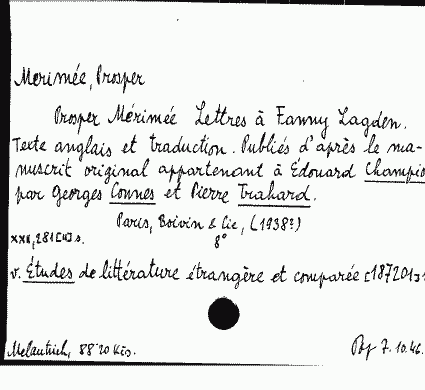 Merimée, Prosper
Prosper Mérimée Lettres à Fanny Lagden.
Texte anglais et traduction. Publiés d'après le ma-
nuscrit original appartenant à Édouard Champio
par Georges Connes et Pierre Trahard.
Paris, Boivin & Cie, (1938?)
XXX, 281 [4] s. 8°
v. Études de littérature étrangère et comparée [187201]
Melantrich, 88·20 Kčs. 7.10.46.